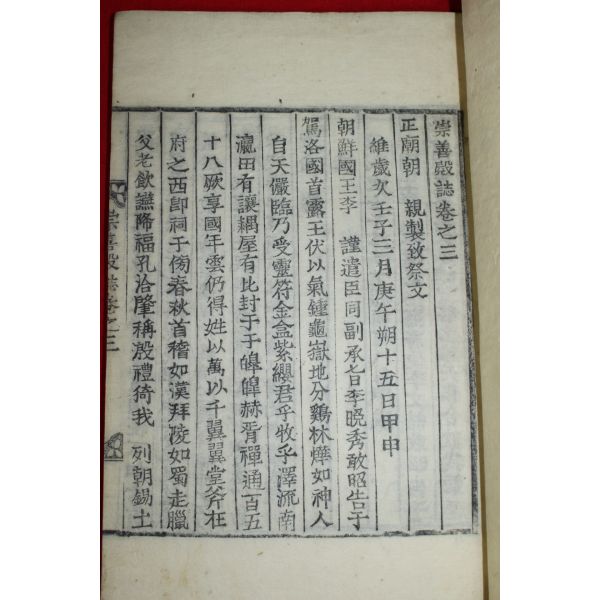 崇善殿誌卷之三
正廟朝 親製致祭文
維歲次壬子三月庚午朔十五日甲申
朝鮮國王李 謹遣臣同副承旨李晩秀敢昭告于
駕洛國首露王伏以氣鍾龜嶽地分鷄林燁如神人
自天儼臨乃受靈符金盒紫纓君乎牧乎澤流南
瀛田有讓耦屋有比封于于皥皥赫胥禪通一百五
十八厥享國年雲仍得姓以萬以千翼翼堂斧在
府之西卽祠于傍春秋首稽如漢拜陵如蜀走臘
父老飮讌降福孔洽肇稱殷禮猗我 列朝錫土
崇善殿誌卷之三